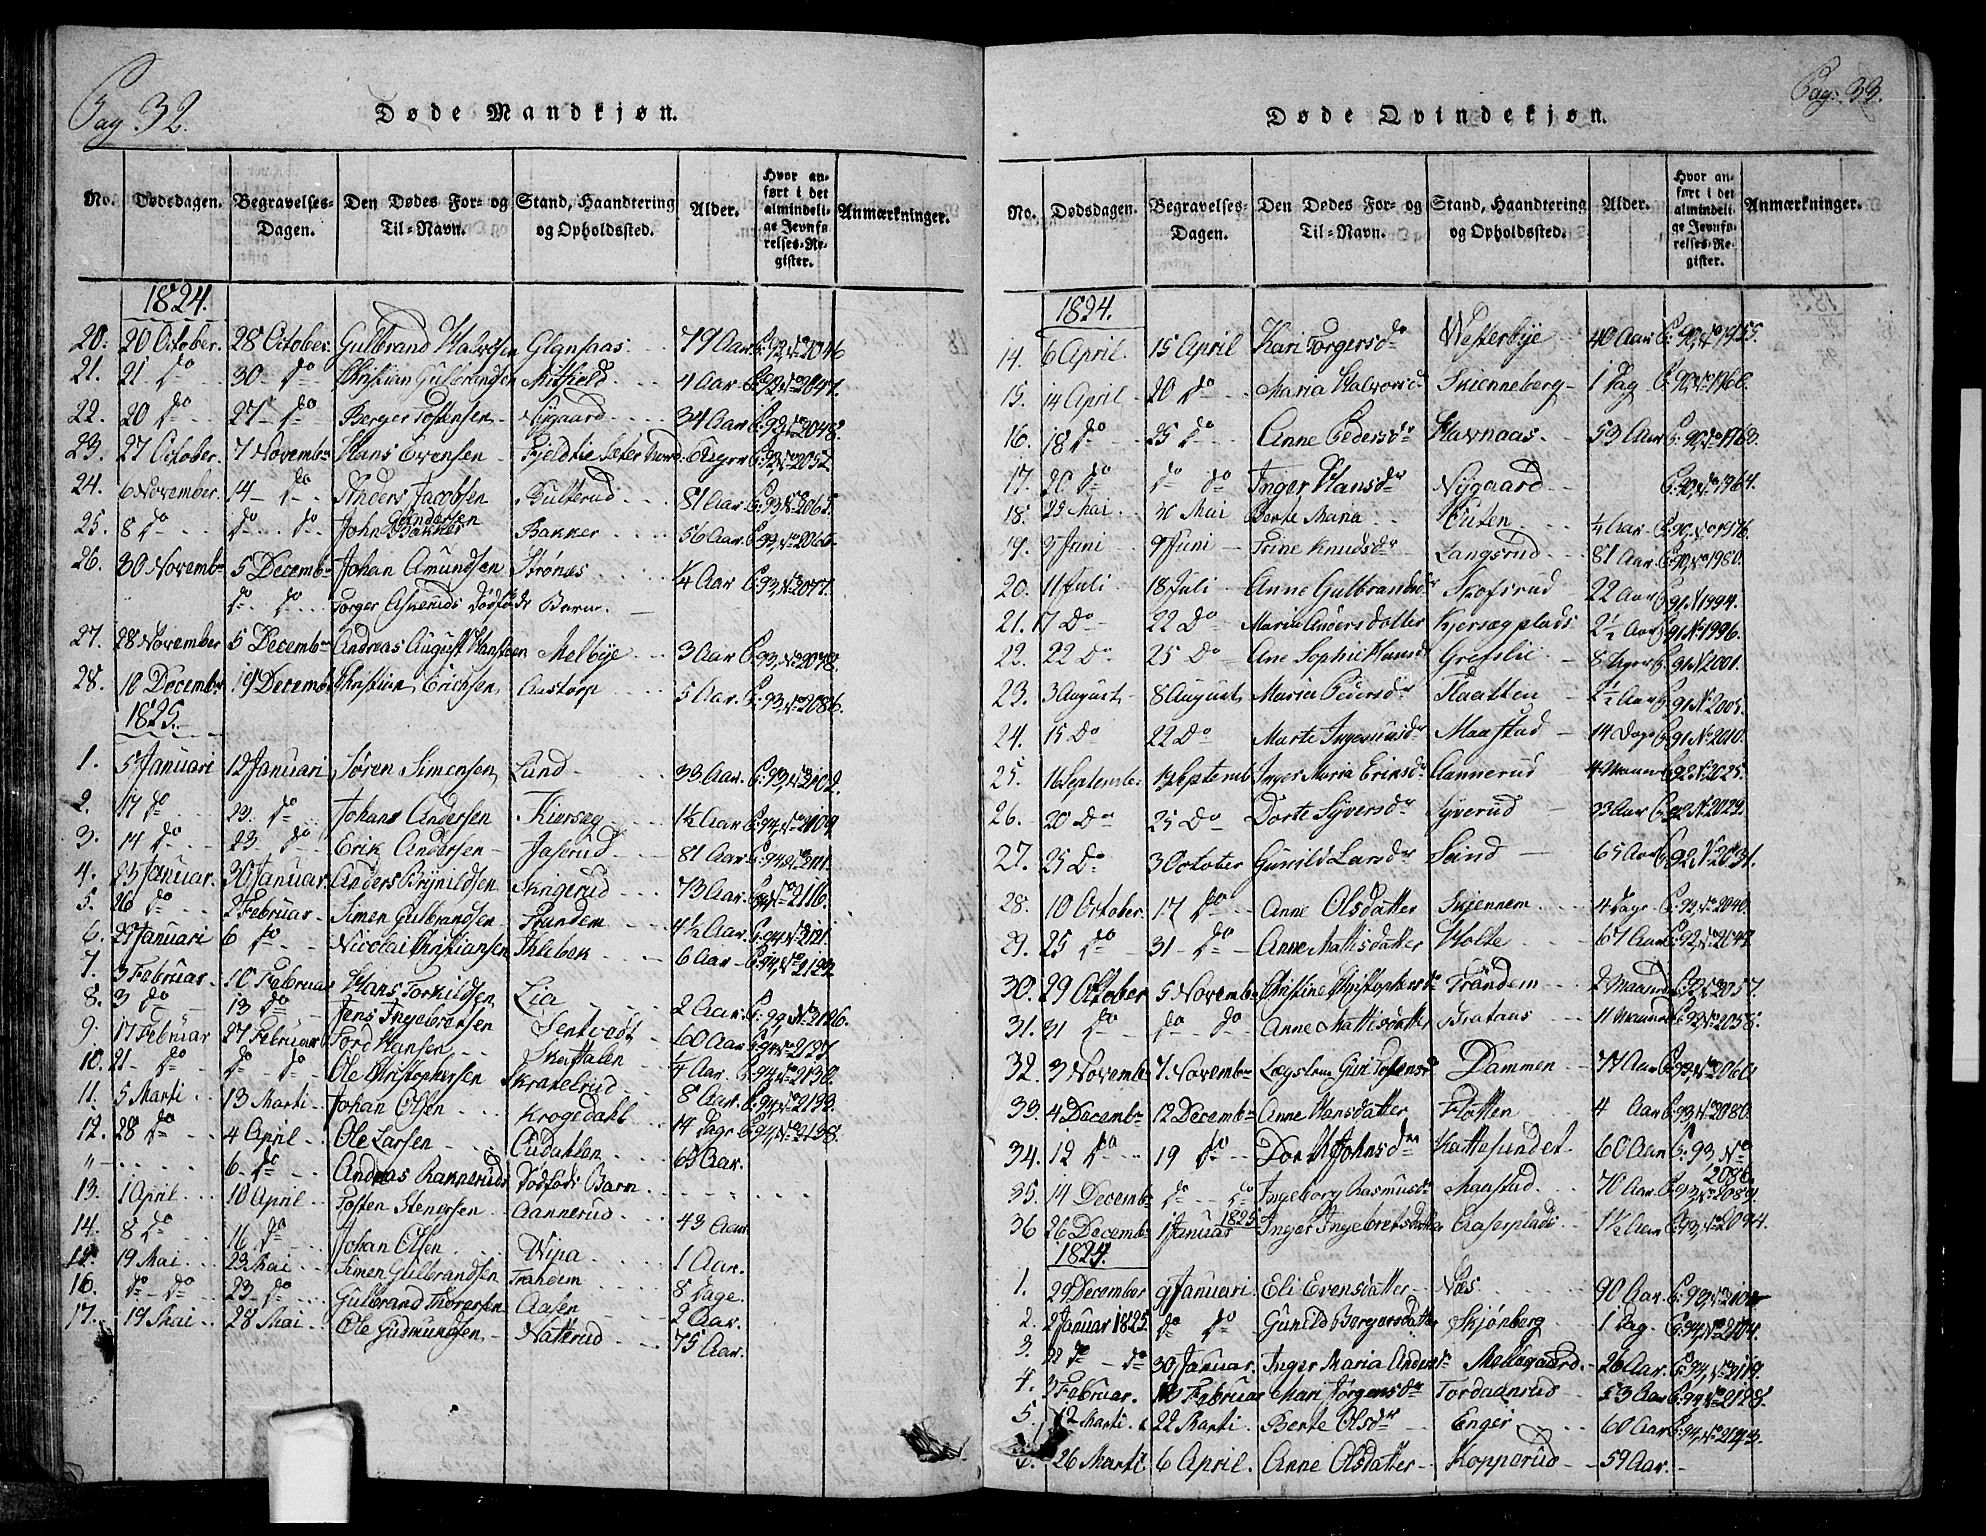 Pag 32.
Døde Mandkjøn.
No. Dødsdagen. Begravelses-Dagen. Den Dødes For- og Til-Navn. Stand, Haandtering og Opholdssted. Alder. Hvor anført i det almindelige Jevnførelses-Register. Anmærkninger.
1824.
20. 20 October. 28 October. Gulbrand Halvorsen Glansaas. 79 Aar P. 92, No 2046
21. 21 do 30 do Christian Gulbrandsen 4 Aar P. 92 No 2047.
22. 20 do 27 do Berger Tostensen Nygaard 34 Aar P. 92 No 2048.
23. 27 October. 7 Novembr Hans Evensen 6 Uger P. 92, No 2052
24. 6 November. 14 do Anders Jacobsen Butterud 81 Aar. P. 93 No 2065.
25. 8 do do do John Andersen Bakker Bakker 56 Aar. P. 93, No 2066.
26. 30 Novembr 5 Decembr Johan Amundsen Strønæs 1/4 Aar P. 93, No 2077.
do do Torger Askeruds Dødfødt Barn.
27. 28 November 5 Decembr Andreas August Hansteen Melbye 3 Aar P. 93, No 2078.
28. 10 Decembr 19 Decembr Christian Erichsen Aastorp 5 Aar. P. 93, No 2086.
1825.
1. 5 Januari 12 Januari Søren Simensen Lund 33 Aar. P. 93, No 2102.
2. 17 do 23. do Johans Andersen Kierseg 1½ Aar P. 94, No 2109
3. 14 do 23 do Erik Andersen Jaserud 81 Aar P. 94 No 2111.
4. 23 Januar. 30 Januar. Anders Brynildsen Krigerud 73 Aar. P. 94 No 2116.
5. 26 do 2 Februar Simen Gulbrandsen Trandem 4½ Aar. P. 94 No 2121.
6. 27 Januari 6 do Nicolai Christiansen Ihlebek 6 Aar P. 94, No 2122.
7. 3 Februar 10 Februar Hans Torkildsen Lia 2 Aar P. 94 No 2126.
8. 3 do 13 do Jens Ingebretsen Sentvedt 60 Aar P. 94 No 2127.
9. 17 Februar 27 Februar Tord Hansen Skottalen 1/4 Aar. P. 94 No 2130.
10. 21 do do do Ole Christophersen Krakelrud 8 Aar. P. 94, No 2133.
11. 5 Marti 13 Marti Johan Olsen Krogedahl 14 Dage P. 94, No 2138.
12. 28 do 4 April Ole Larsen Audahlen 65 Aar.
" 6. do Andreas Rannerud's Dødfødt Barn
13. 1 April 10 April Tosten Stenersen Aannerud 43 Aar.
14. 8 do 16. do Johan Olsen Wipa 1 Aar.
15. 19 Mai 23 Mai Simen Gulbrandsen Trandem 8 Dage.
16. do do 23. do Gulbrand Thoresen Aasen 2 Aar.
17. 19 Mai 28 Mai Ole Gudmundsen Natterud 75 Aar.
Pag: 33.
Døde Qvindekjøn.
No. Dødsdagen. Begravelses-Dagen. Den Dødes For- og Til-Navn. Stand, Haandtering og Opholdssted. Alder. Hvor anført i det almindelige Jevnførelses-Register. Anmærkninger.
1824.
14. 6 April 15 April Kari Torgersdr Westerbye 40 Aar P. 90, No 1955.
15. 14 April 20 do Maria Halvorsdr Skienneberg 1 Dag P. 90, No 1960.
16. 18 do 25 do Anne Pedersdr Havnaas 53 Aar P. 90, No 1963.
17. 20 do do do Inger Hansdr Nygaard P. 90, No 1964.
18. 23 Mai 30 Mai Berte Maria 1/4 Aar. P. 90, No 1976.
19. 3 Juni 9 Juni Trine Knudsdr Langsrud 81 Aar P. 90, No 1980.
20. 11 Juli 18 Juli Anne Gulbrandsdr Skofsrud 22 Aar P. 91 N 1994.
21. 17 Do 22 Do Maria Andersdatter Kjersegplads 2½ Aar P. 91 No 1996.
22. 22 Do 25 Do Ane Sophie Grefslie 8 Uger P. 91 N 2001.
23. 3 August 8 August Maria Pedersdr Slaatten 2½ Aar P. 91 N. 2005.
24. 15 Do 22 Do Marte Ingemundsdr Maastad 14 Dage P. 91 No 2010.
25. 16 Septembr Septemb Inger Maria Eriksdr Aannerud 4 Maaned P. 92 N 2025.
26. 20 Do 25 Do Dorte Syversdr Syverud 33 Aar P. 92 N. 2029.
27. 25 Do 3 October Gunild Larsdr Sand 65 Aar P. 92 N 2031.
28. 10 October. 17 do Anne Olsdatter Skjennem 4 Dage P. 92, No 2040.
29. 25 do 31 do Anne Mattisdatter Holte 67 Aar P. 92, No 2047.
30. 29 Oktober 5 Novembr Christine Christophersdr Trandem 2 Maand P. 92, No 2057.
31. 31 do do do Anne Mattisdatter Brataas 11 Maaned P. 92 No 2058.
32. 3 Novembr 7. Novembr Lægslem Guri Tostensdr Dammen 77 Aar P. 93, No 2060.
33. 4 Decembr 12 Decembr Anne Hansdatter Flatten 4 Aar P. 93, No 2080.
34. 12 do 19 do Dorthe Johnsdr Kattesundet 60 Aar P. 93 No 2086.
35. 14 Decembr do do Ingeborg Rasmusdr Maastad 70 Aar P. 93 No 2089.
36 26 Decembr 1 Januar 1825 Inger Ingebretsdatter Aaserplads 1½ Aar P. 93, No 2094.
1824.
1. 29 December 9 Januari Eli Evensdatter Næs 90 Aar. P. 93, No 2101
2. 2 Januar 1825 do do Gunild Borgersdatter Skjønberg 1 Dag. P. 94, No 2104.
3. 22 do do 30 Januar. Inger Maria Andersdr Mellegaard 26 Aar. P. 94, No 2119.
4. 3 Februar. 10 Februar Mari Jørgensdr Tordaarud 53 Aar P. 94, No 2128.
5. 12 Marti 22 Marti Berte Olsdr Enger 60 Aar P. 94, No 2143.
26 Marti 6 April. Anne Olsdatter Kopperud 59 Aar.